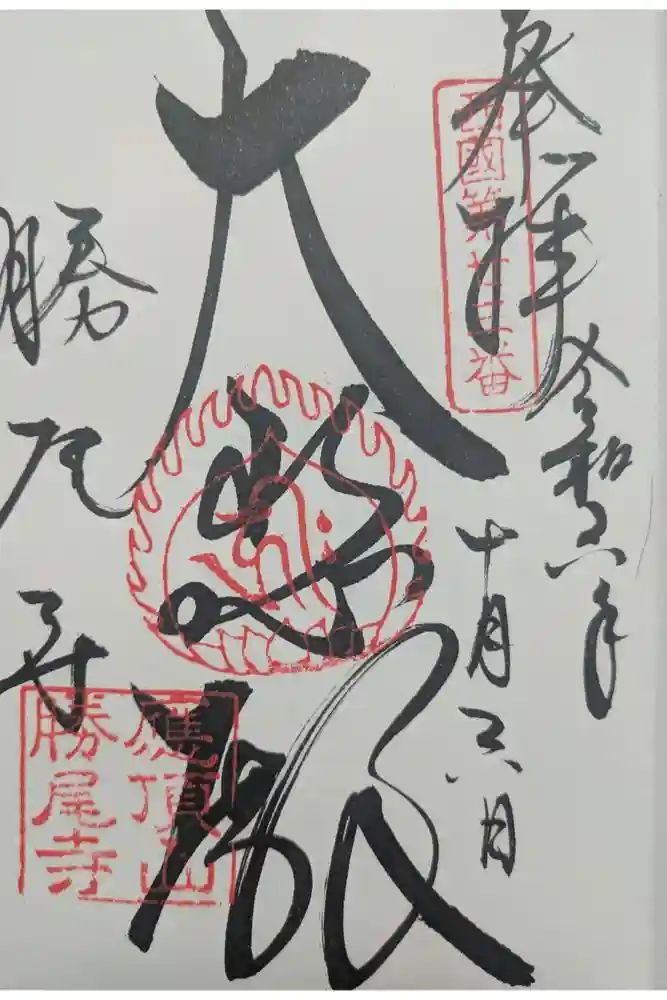 奉拝 令和六年
西國第廿三番
十月六日
大悲殿
勝尾寺
應頂山
勝尾寺